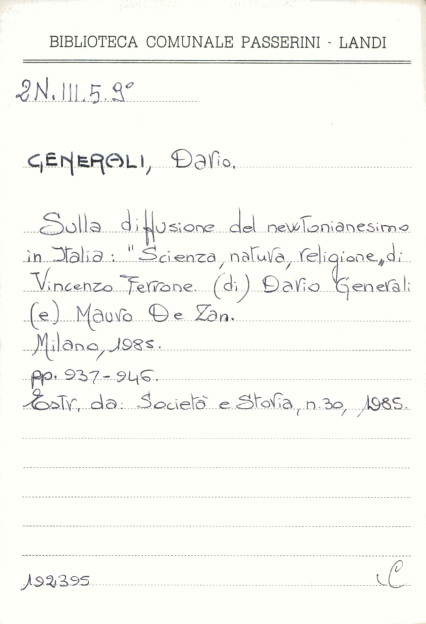 BIBLIOTECA COMUNALE PASSERINI - LANDI
2N.III.5.9°
GENERALI, Dario.
Sulla diffusione del newtonianesimo
in Italia: "Scienza, natura, religione„ di
Vincenzo Ferrone. (di) Dario Generali
(e) Mauro De Zan.
Milano, 1985.
pp. 937-946.
Estr. da: Società e Storia, n.30, 1985.
192395 C